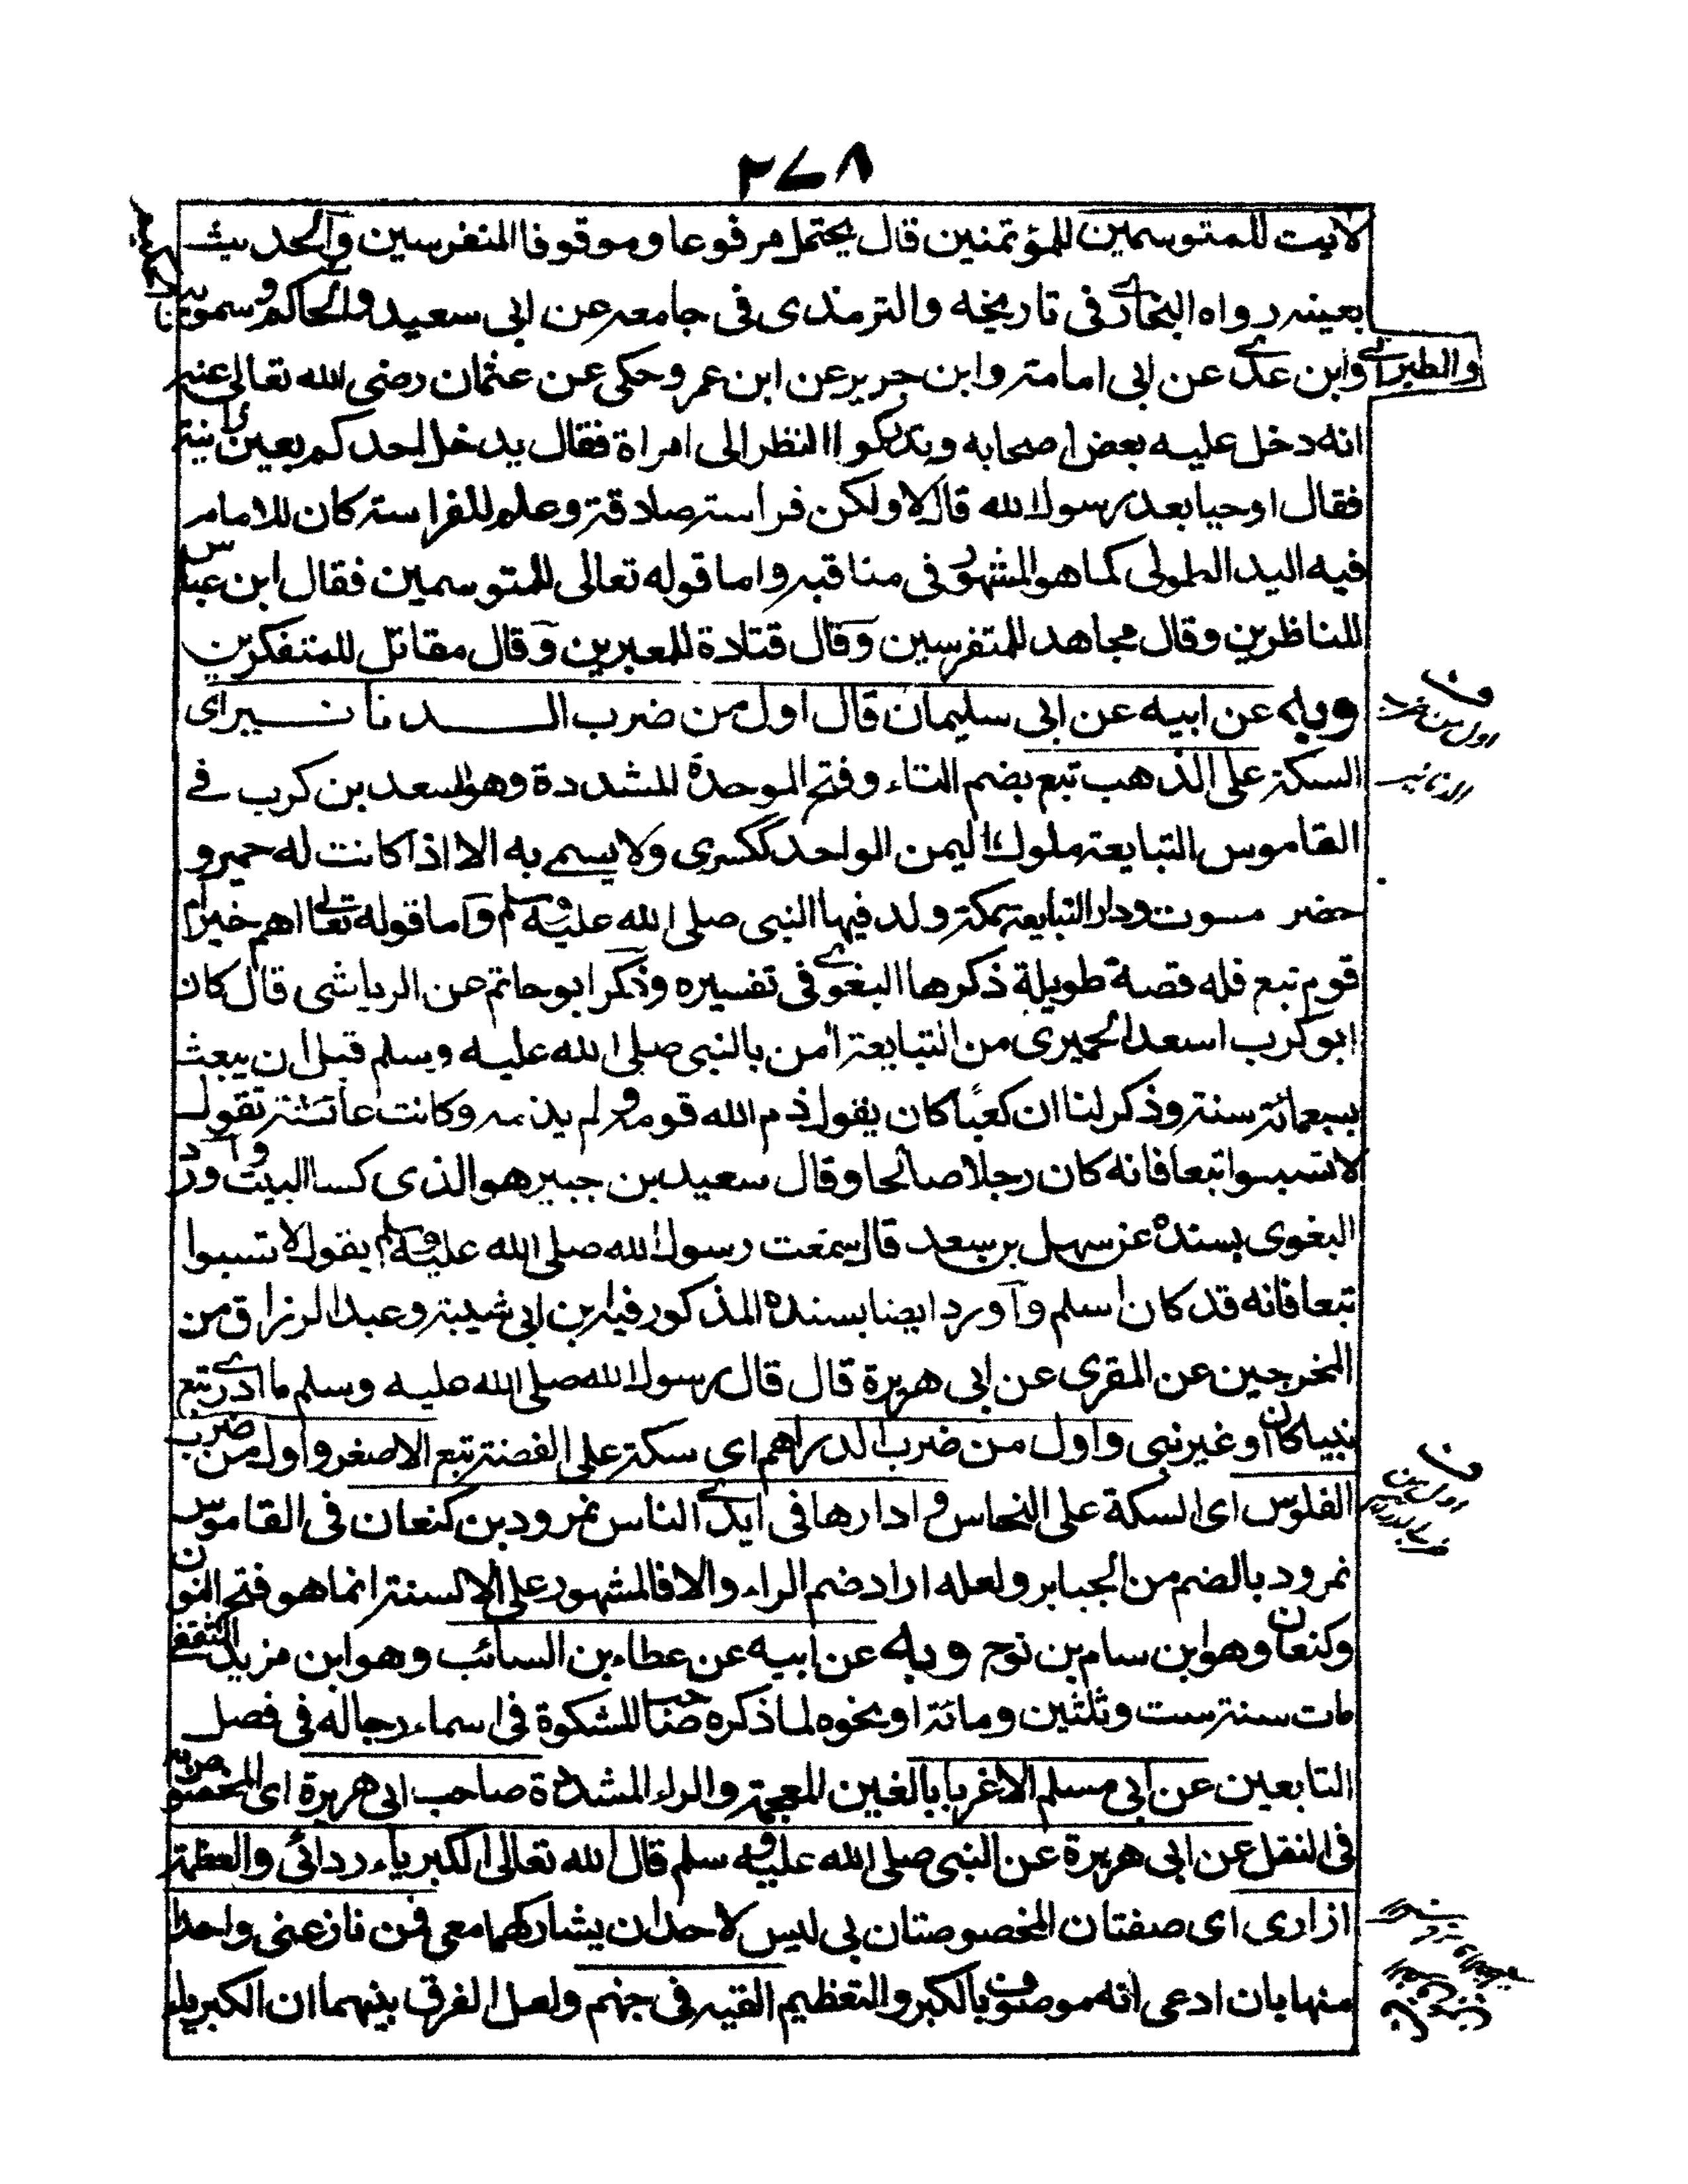 ٢٧٨
لايت للمتوسمين للمؤتمنين قال يحتمل مرفوعا وموقوفا المتفرسين والحديث
بعينه رواه البخارى فى تاريخه والترمذى فى جامعه عن ابى سعيد والحاكم وسمويه
والطبرانى وابن عدى عن ابى امامة وابن جرير عن ابن عمر وحكى عن عثمان رضى الله تعالى عنه
انه دخل عليه بعض اصحابه النظر الى امراة فقال يدخل احدكم بعين
فقال اوحيا بعد رسول الله قال لا ولكن فراسة صادقة وعلم للفراسة كان للامام
فيه اليد الطولى كما هو المشهور فى مناقبه واما قوله تعالى للمتوسمين فقال ابن عباس
للناظرين وقال مجاهد للمتفرسين وقال قتادة للمعبرين وقال مقاتل للمتفكرين
وبه عن ابيه عن ابى سليمان قال اول من ضرب الدنانير اى
السكة على الذهب تبع بضم التاء وفتح الموحدة المشددة وهو اسعد بن كرب فے
القاموس التبايعة ملوك اليمن الواحد ككسرى ولا يسمى به الا اذا كانت له حمير و
حضر موت ودار التبايعة بمكة ولد فيها النبى صلى الله عليه وسلم واما قوله تعالى اهم خير ام
قوم تبع فله قصة طويلة ذكرها البغوى فى تفسيره وذكر ابو حاتم عن الرياشى قال كان
ابو كرب اسعد الحميرى من التبايعة امن بالنبى صلى الله عليه وسلم قبل ان يبعث
بسبعمائة سنة وذكر لنا ان كعبا كان يقول ذم الله قومه ولم يذمه وكانت عائشة تقول
لا تسبوا تبعا فانه كان رجلا صالحا وقال سعيد بن جبير هو الذى كسا البيت واورد
البغوى بسنده عن سهل بن سعد قال سمعت رسول الله صلى الله عليه وسلم يقول لا تسبوا
تبعا فانه قد كان اسلم واورد ايضا بسنده المذكور فيه ابن ابى شيبة وعبد الرزاق من
المخرجين عن المقرى عن ابى هريرة قال قال رسول الله صلى الله عليه وسلم ما ادرى تبع
نبيا كان او غير نبى واول من ضرب الدراهم اى سكة على الفضة تبع الاصغر واول من ضرب
الفلوس اى السكة على النحاس و ادارها فى ايدى الناس نمرود بن كنعان فى القاموس
نمرود بالضم من الجبابر ولعله اراد ضم الراء والا فالمشهور على الالسنة انما هو فتح النون
وكنعان وهو ابن سام بن نوح وبه عن ابيه عن عطاء بن السائب وهو ابن مزيد الثقفى
مات سنة ست وثلثين ومائة او نحوه لما ذكره صاحب المشكوة فى اسماء رجاله فى فصل
التابعين عن ابى مسلم الاغر بابا بالغين المعجمة والراء المشددة صاحب ابى هريرة اى
فى النقل عن ابى هريرة عن النبى صلى الله عليه وسلم قال الله تعالى الكبرياء ردائى والعظمة
ازارى اى صفتان المخصوصتان بى ليس لاحد ان يشاركهما معى فمن نازعنى واحدا
منها بان ادعى انه موصوف بالكبر والتعظيم القيه فى جهنم ولعل الفرق بينهما ان الكبرياء